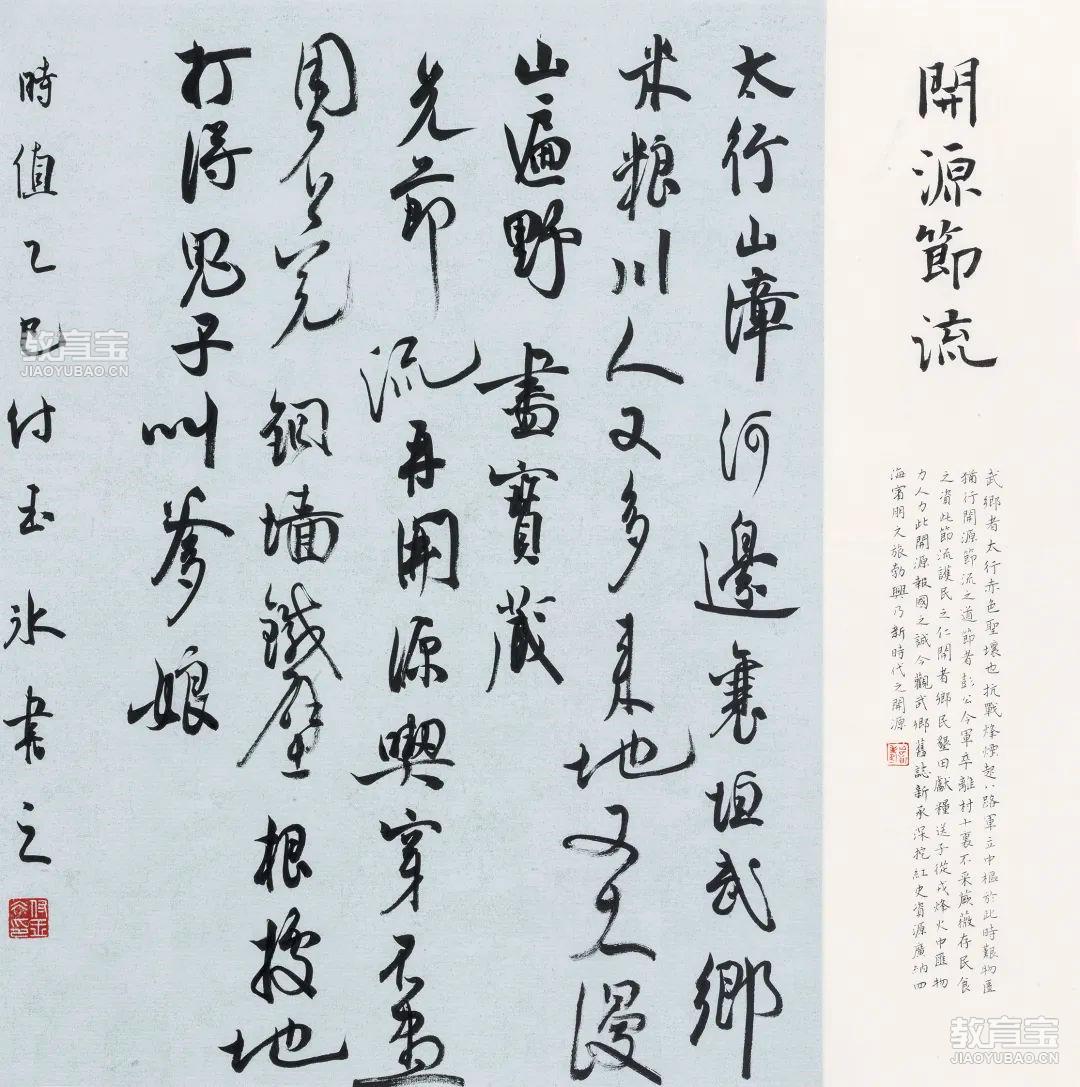 開源節流
武鄉者太行赤色聖壤也抗戰烽煙起八路軍立中樞於此時艱物匱
猶行開源節流之道節者彭公令軍卒離村十裏不采蕨薇存民食
之資此節流護民之仁開者鄉民墾田獻糧送子從戎烽火中匯物
力人力此開源報國之誠今觀武鄉舊誌新承深挖紅史資源廣納四
海賓朋文旅勃興乃新時代之開源
太行山漳河邊襄垣武鄉
米糧川人又多來地又漫
山遍野盡寶藏
先節流再開源喫穿不盡
用不完銅墻鐵壁根據地
打得鬼子叫爹娘
時值乙巳付玉冰書之
教育宝
JIAOYUBAO.CN
教育宝
JIAOYUBAO.CN